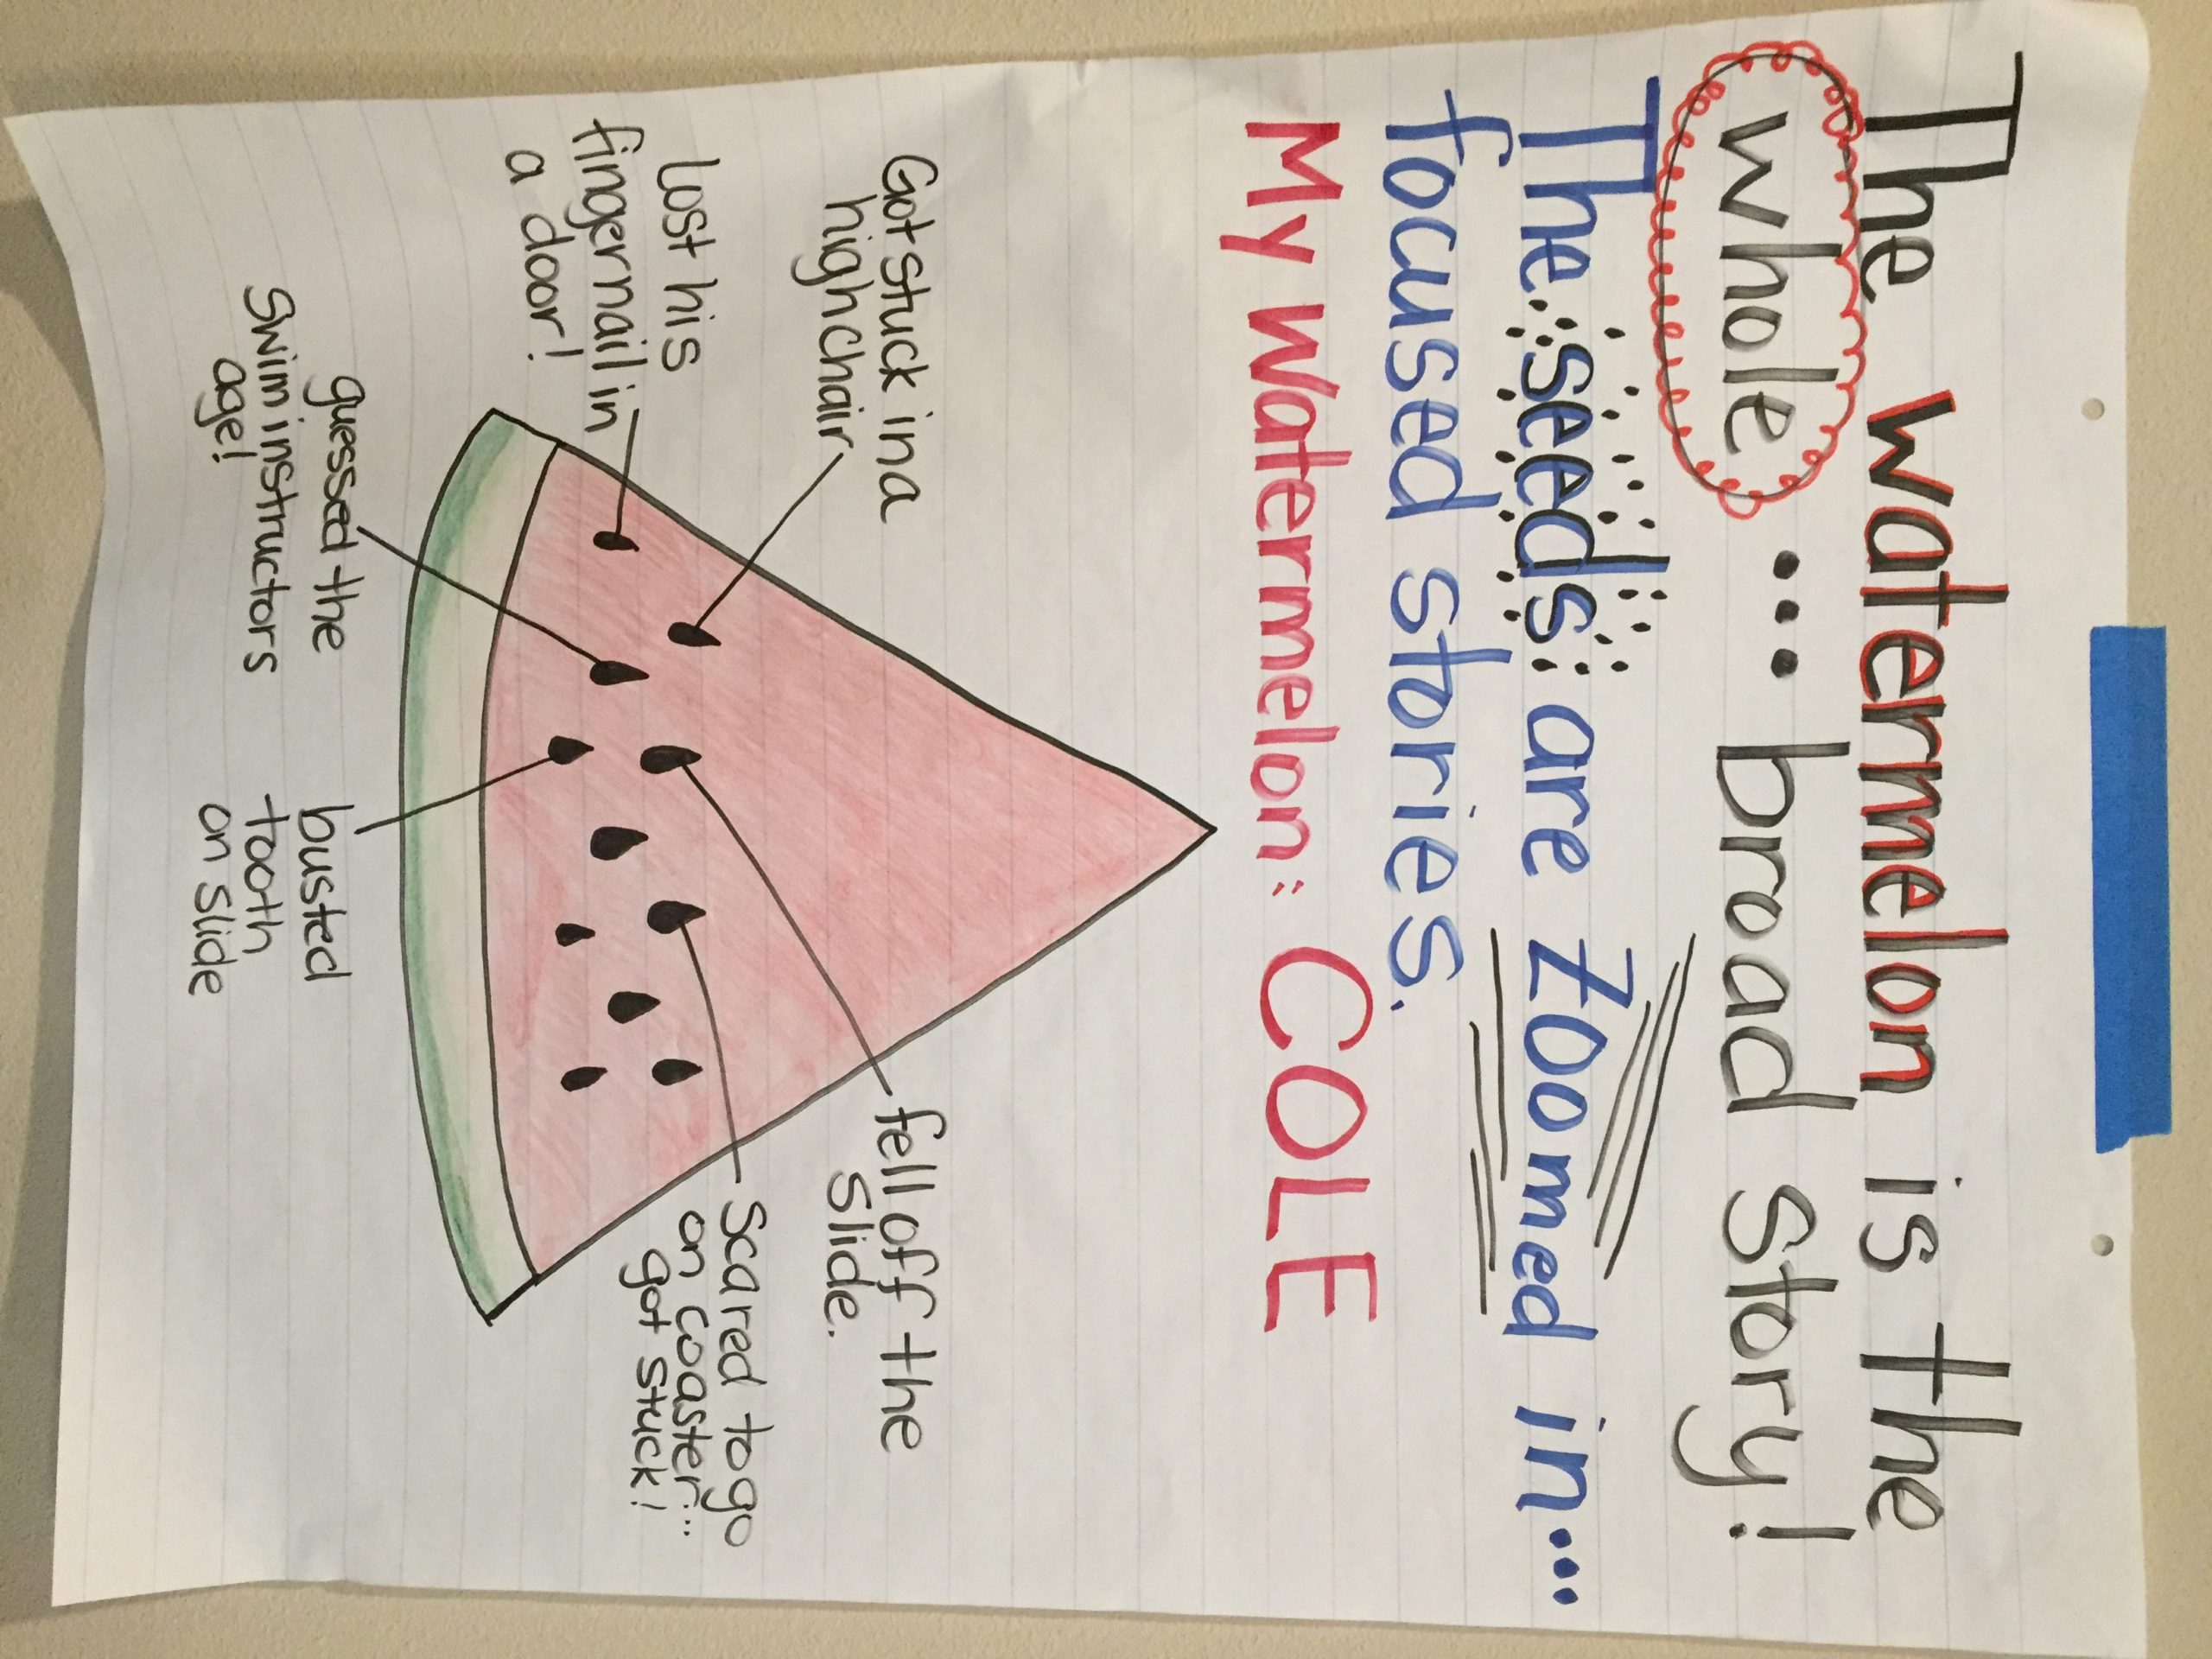 The watermelon is the
whole ... broad story!
The seeds are zoomed in...
focused stories.
My watermelon: COLE
Got stuck in a
highchair
fell off the
slide.
lost his
fingernail in
a door!
Scared to go
on coaster...
got stuck!
guessed the
swim instructors
age!
busted
tooth
on slide